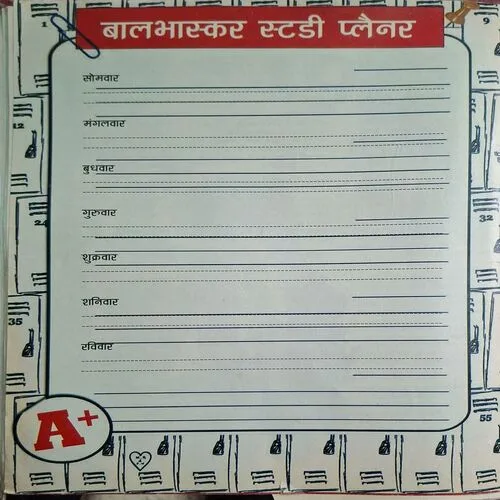 बालभास्कर स्टडी प्लैनर
1
9
सोमवार
12
मंगलवार
बुधवार
गुरुवार
24
32
शुक्रवार
शनिवार
35
रविवार
A+
55